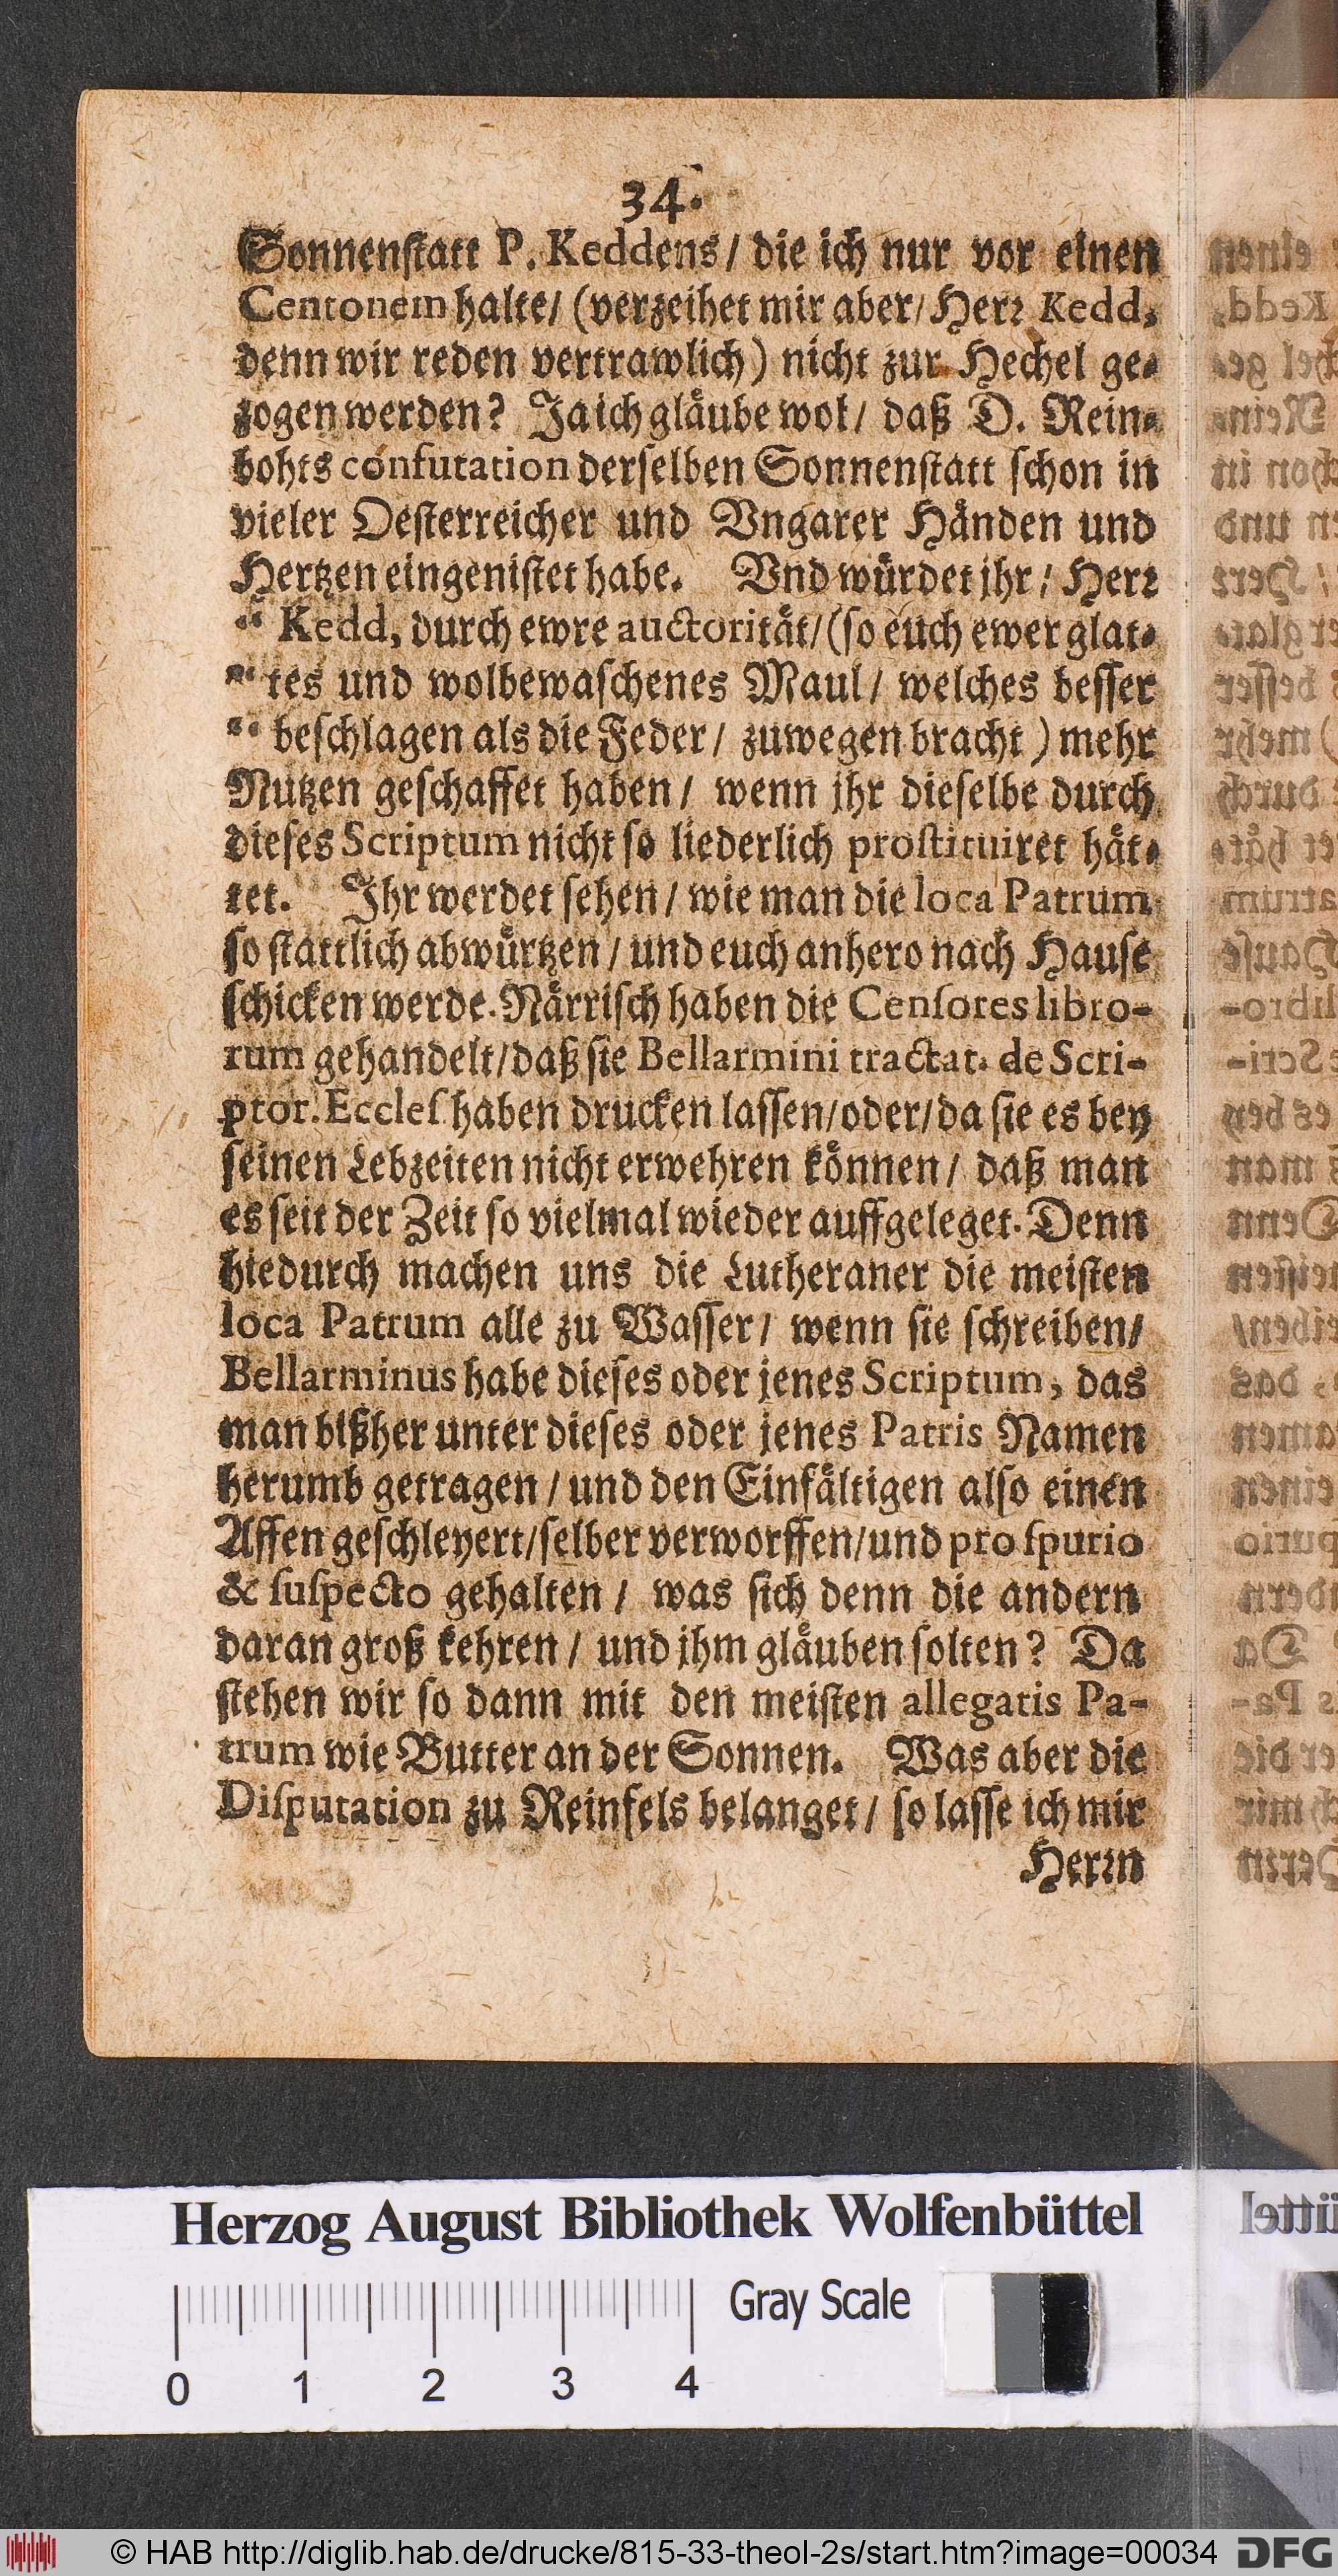 34.
Sonnenſtatt P. Keddens / die ich nur vor einen
Centonem halte / (verzeihet mir aber / Herꝛ Kedd,
denn wir reden vertrawlich) nicht zur Hechel ge⸗
zogen werden? Ja ich glaͤube wol / daß D. Rein⸗
bohts confutation derſelben Sonnenſtatt ſchon in
vieler Oeſterreicher und Vngarer Haͤnden und
Hertzen eingeniſtet habe. Vnd wuͤrdet jhr / Herꝛ
“ Kedd, durch ewre auctoritaͤt / (ſo euch ewer glat⸗
“ tes und wolbewaſchenes Maul / welches beſſer
“ beſchlagen als die Feder / zuwegen bracht ) mehr
Nutzen geſchaffet haben / wenn jhr dieſelbe durch
dieſes Scriptum nicht ſo liederlich proſtituiret haͤt⸗
tet. Ihr werdet ſehen / wie man die loca Patrum
ſo ſtattlich abwuͤrtzen / und euch anhero nach Hauſe
ſchicken werde. Naͤrriſch haben die Cenſores libro-
rum gehandelt / daß ſie Bellarmini tractat. de Scri-
ptor. Eccleſ. haben drucken laſſen / oder / da ſie es bey
ſeinen Lebzeiten nicht erwehren koͤnnen / daß man
es ſeit der Zeit ſo vielmal wieder auffgeleget. Denn
hiedurch machen uns die Lutheraner die meiſten
loca Patrum alle zu Waſſer / wenn ſie ſchreiben /
Bellarminus habe dieſes oder jenes Scriptum, das
man bißher unter dieſes oder jenes Patris Namen
herumb getragen / und den Einfaͤltigen alſo einen
Affen geſchleyert / ſelber verworffen / und pro ſpurio
& ſuſpecto gehalten / was ſich denn die andern
daran groß kehren / und jhm glaͤuben ſolten? Da
ſtehen wir ſo dann mit den meiſten allegatis Pa-
trum wie Butter an der Sonnen. Was aber die
Diſputation zu Reinfels belanget / ſo laſſe ich mir
Herꝛn
Herzog August Bibliothek Wolfenbüttel
Gray Scale
0 1 2 3 4
© HAB http://diglib.hab.de/drucke/815-33-theol-2s/start.htm?image=00034 DFG